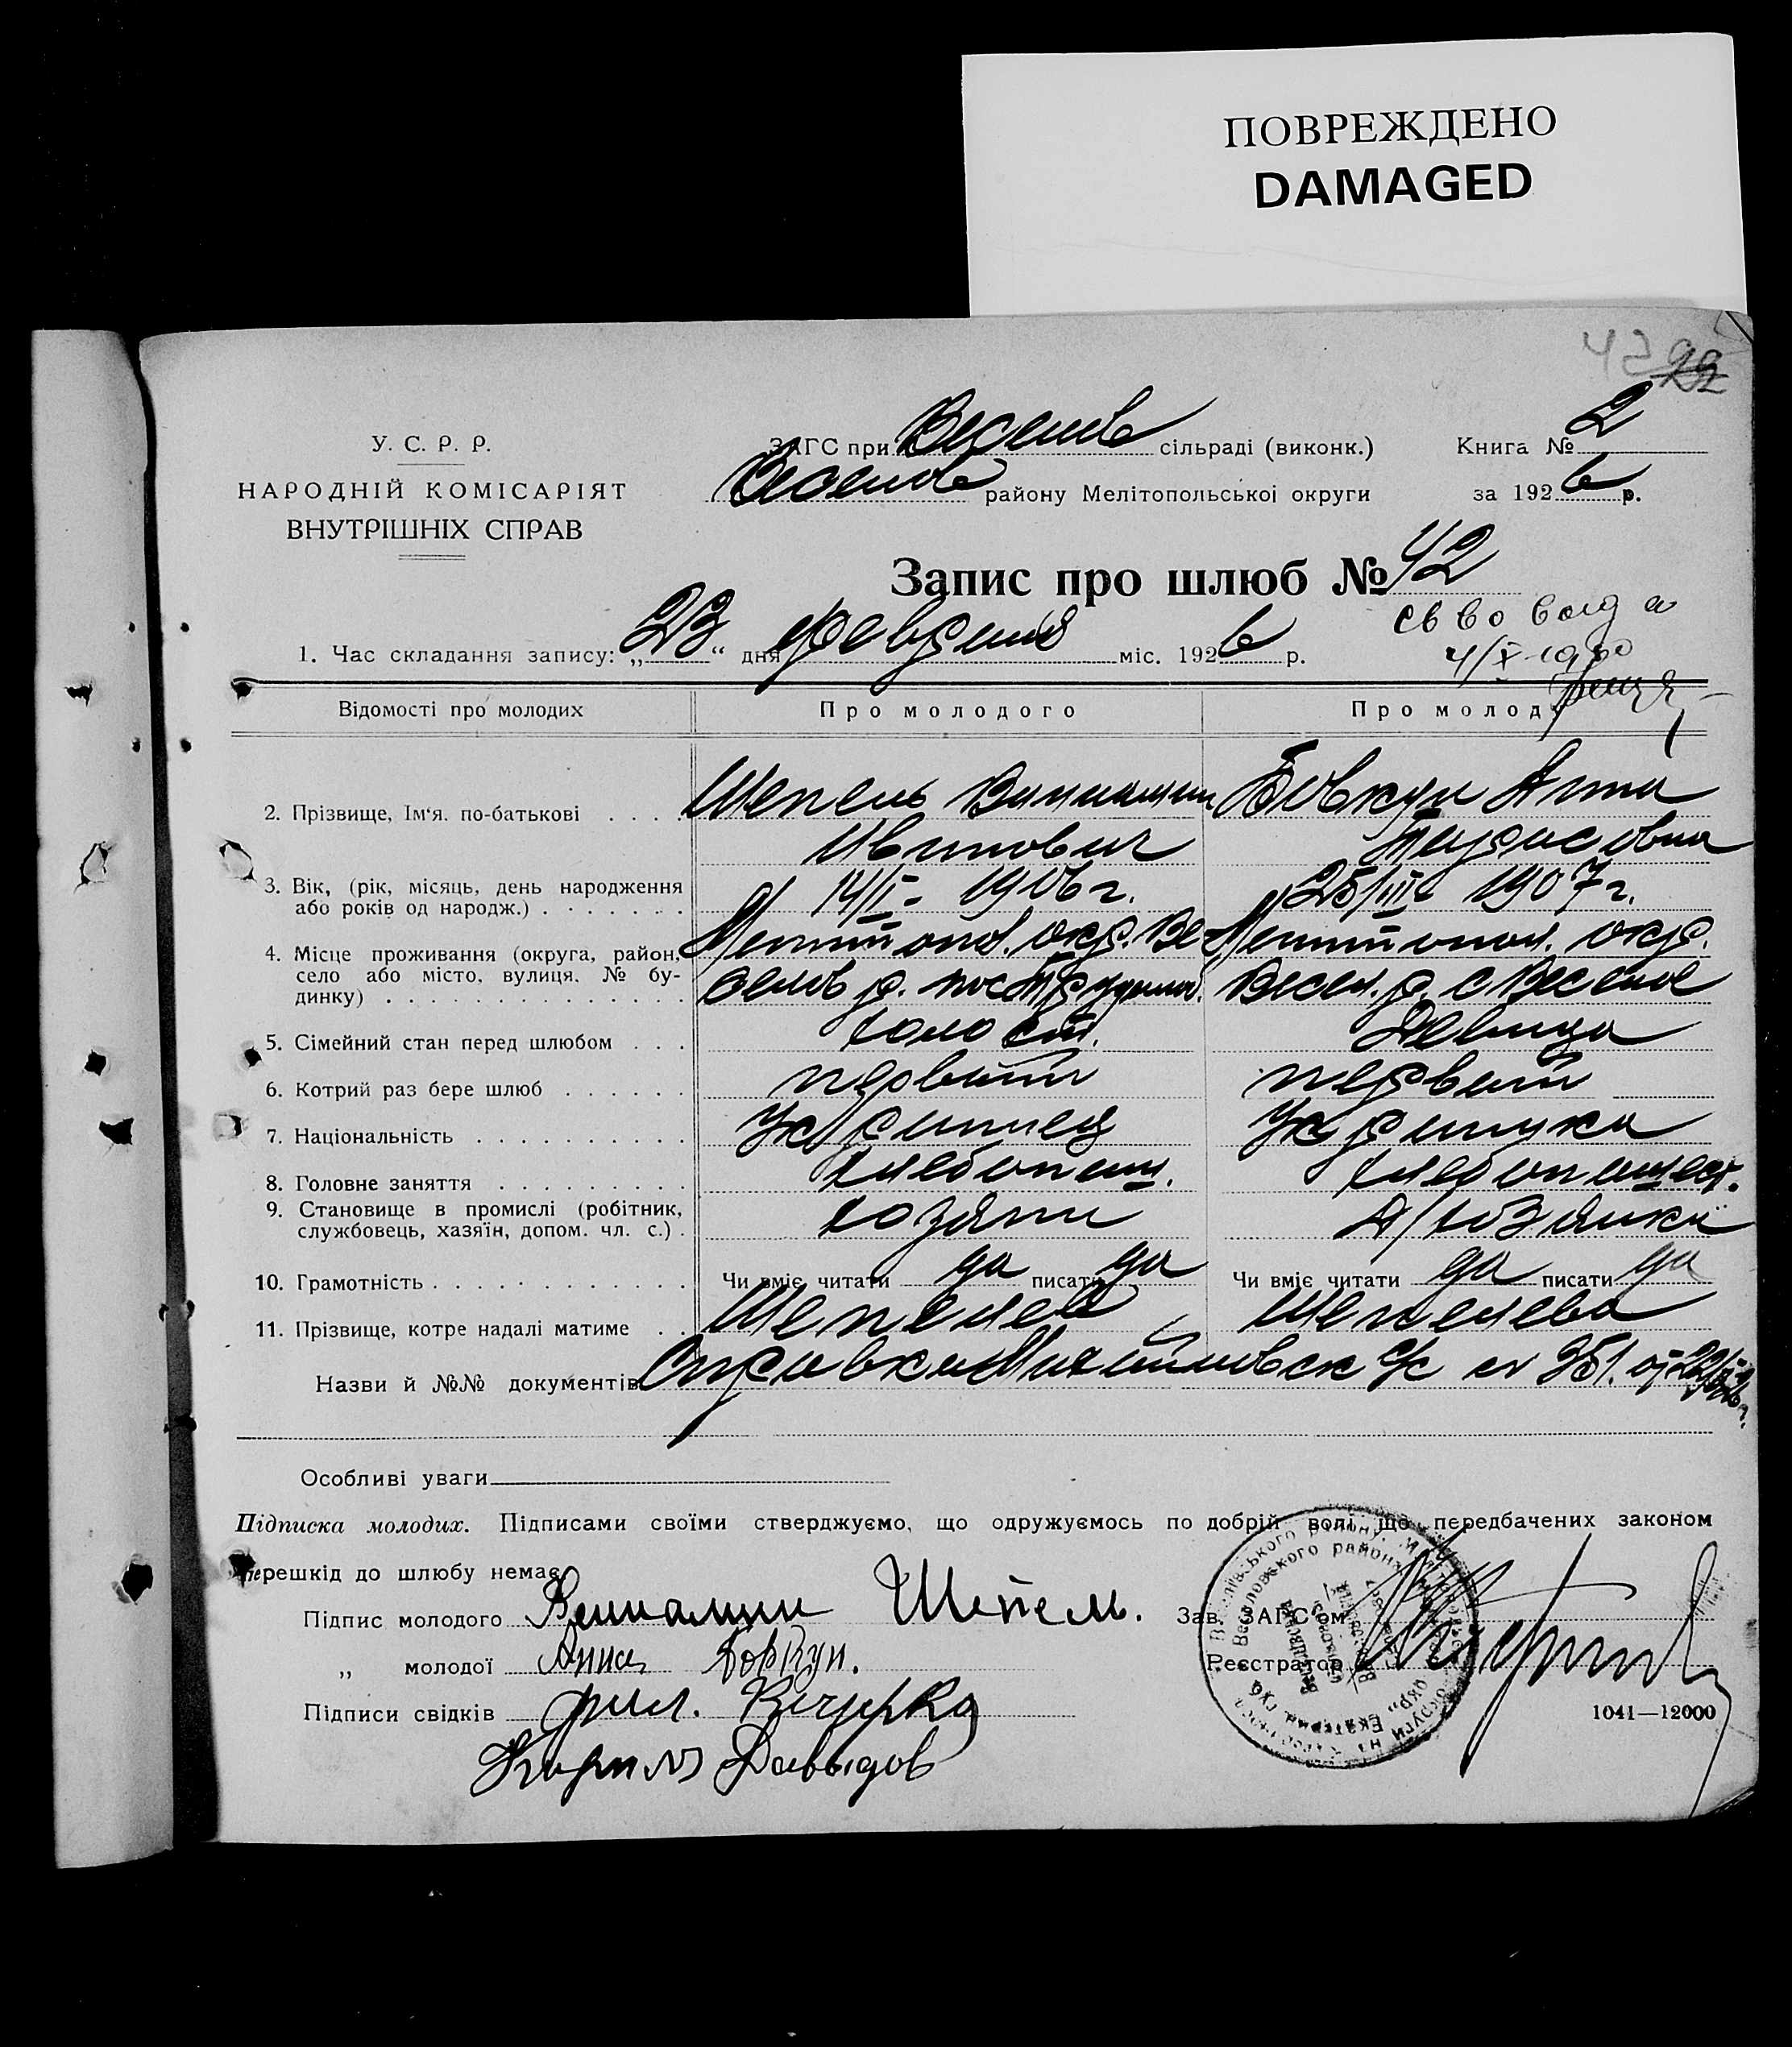 ПОВРЕЖДЕНО
DAMAGED
42
У. С. Р. Р.
НАРОДНІЙ КОМІСАРІЯТ
ВНУТРІШНІХ СПРАВ
ЗАГС при Веселов сільраді (виконк.) Книга № 2
Веселов району Мелітопольської округи за 1926 р.
Запис про шлюб № 42
1. Час складання запису: „23“ дня февраля міс. 1926 р.
Св во выд а
4/X-1960
Відомості про молодих Про молодого Про молоду
2. Прізвище, Ім'я. по-батькові Шепель Вениамин Бовкун Анна
Иванович Тарасовна
3. Вік, (рік, місяць, день народження
або років од народж.) 14/I- 1906 г. 25/III- 1907 г.
4. Місце проживання (округа, район,
село або місто, вулиця. № бу-
динку)
Мелитопол. окр. Ве- Мелитопол. окр.
селов р. пос Весел. р. с Веселое
5. Сімейний стан перед шлюбом холост. Девица
6. Котрий раз бере шлюб первый первый
7. Національність Украинец Украинка
8. Головне заняття хлебопаш. хлебопашест.
9. Становище в промислі (робітник,
службовець, хазяїн, допом. чл. с.) хозяин Д/хозяйка
10. Грамотність Чи вміє читати да писати да Чи вміє читати да писати да
11. Прізвище, котре надалі матиме Шепелев Шепелева
Назви й №№ документів Справка с/с № 251. от
Особливі уваги
Підписка молодих. Підписами своїми стверджуємо, що одружуємось по добрій волі, що передбачених законом
перешкід до шлюбу немає
Підпис молодого Вениамин Шепель. Зав. ЗАГС'ом
„ молодої Анна Бовкун. Реєстратор
Підписи свідків
1041—12000
Кирилъ Давыдов